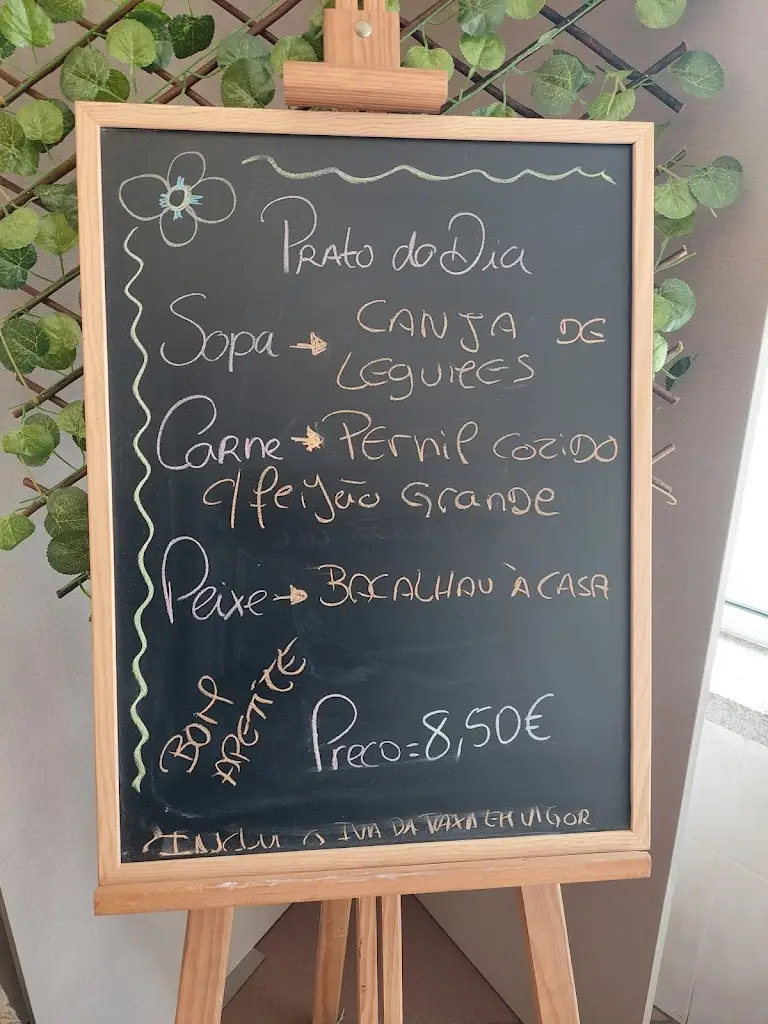 Prato do Dia
Sopa → CANJA DE
LEGUMES
Carne → Pernil cozido
c/ feijão Grande
Peixe → BACALHAU À CASA
BOM
APETITE
Preco = 8,50€
*INCLUI O IVA DA TAXA EM VIGOR